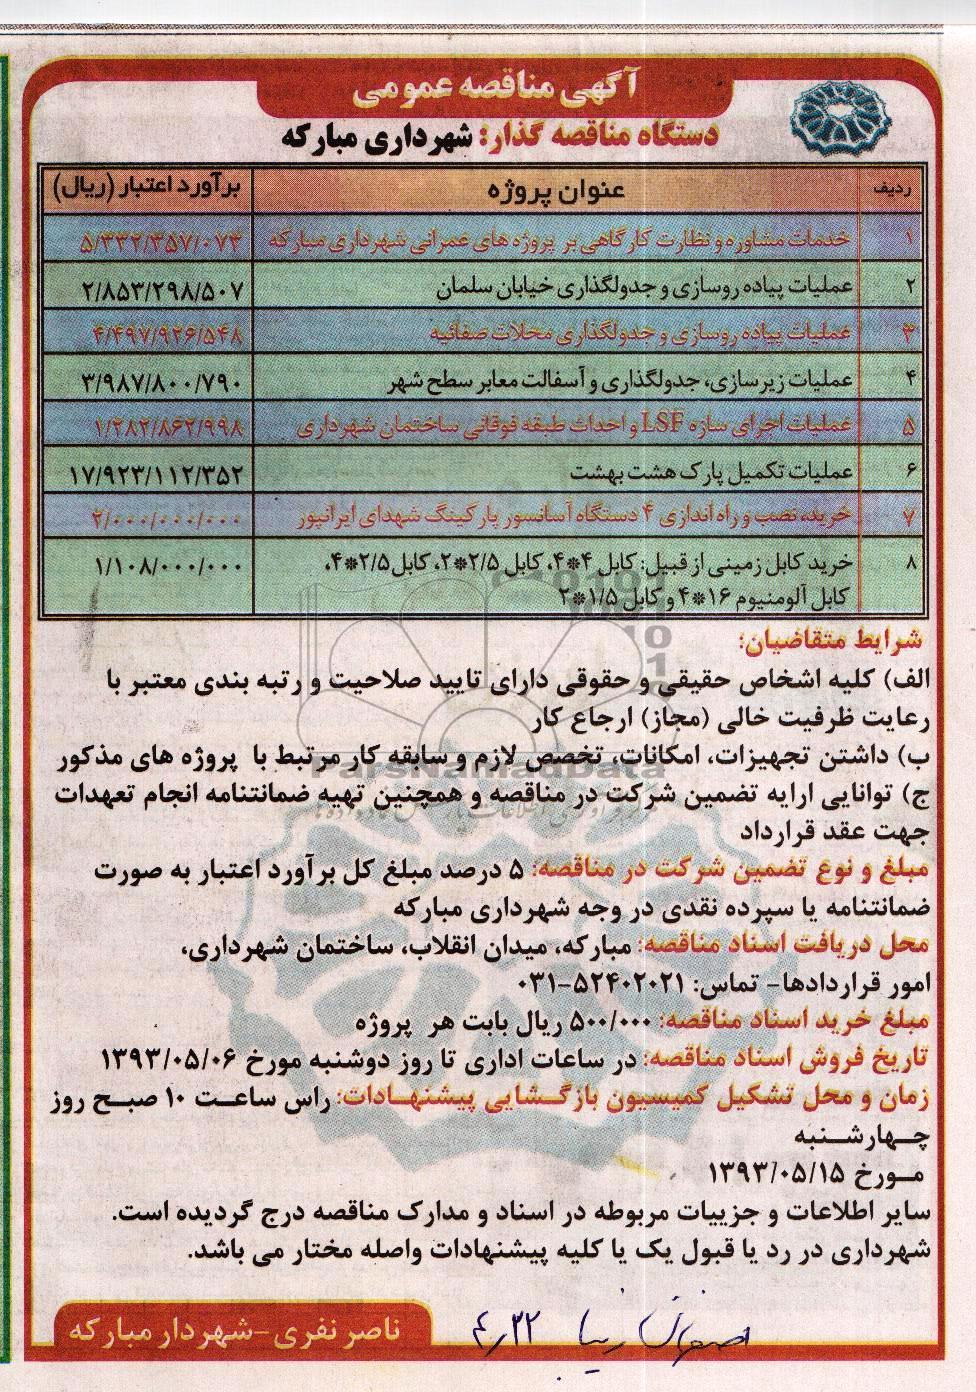 آگهی مناقصه عمومی
دستگاه مناقصه گذار: شهرداری مبارکه
ردیف عنوان پروژه برآورد اعتبار (ریال)
۱ خدمات مشاوره و نظارت کارگاهی بر پروژه های عمرانی شهرداری مبارکه ۵/۳۳۲/۳۵۷/۰۷۳
۲ عملیات پیاده روسازی و جدولگذاری خیابان سلمان ۲/۸۵۳/۲۹۸/۵۰۷
۳ عملیات پیاده روسازی و جدولگذاری محلات صفائیه ۴/۴۹۷/۹۲۶/۵۴۸
۴ عملیات زیرسازی، جدولگذاری و آسفالت معابر سطح شهر ۳/۹۸۷/۸۰۰/۷۹۰
۵ عملیات اجرای سازه LSF و احداث طبقه فوقانی ساختمان شهرداری ۱/۲۸۲/۸۶۲/۹۹۸
۶ عملیات تکمیل پارک هشت بهشت ۱۷/۹۲۳/۱۱۲/۳۵۲
۷ خرید، نصب و راه اندازی ۴ دستگاه آسانسور پارکینگ شهدای ایرانپور ۲/۰۰۰/۰۰۰/۰۰۰
۸ خرید کابل زمینی از قبیل: کابل ۴*۴، کابل ۲/۵*۲، کابل ۲/۵*۴، ۱/۱۰۸/۰۰۰/۰۰۰
کابل آلومنیوم ۱۶*۴ و کابل ۱/۵*۲
شرایط متقاضیان:
الف) کلیه اشخاص حقیقی و حقوقی دارای تایید صلاحیت و رتبه بندی معتبر با
رعایت ظرفیت خالی (مجاز) ارجاع کار
ب) داشتن تجهیزات، امکانات، تخصص لازم و سابقه کار مرتبط با پروژه های مذکور
ParsNamadData
ج) توانایی ارایه تضمین شرکت در مناقصه و همچنین تهیه ضمانتنامه انجام تعهدات
جهت عقد قرارداد
مبلغ و نوع تضمین شرکت در مناقصه: ۵ درصد مبلغ کل برآورد اعتبار به صورت
ضمانتنامه یا سپرده نقدی در وجه شهرداری مبارکه
محل دریافت اسناد مناقصه: مبارکه، میدان انقلاب، ساختمان شهرداری،
امور قراردادها- تماس: ۵۲۴۰۲۰۲۱-۰۳۱
مبلغ خرید اسناد مناقصه: ۵۰۰/۰۰۰ ریال بابت هر پروژه
تاریخ فروش اسناد مناقصه: در ساعات اداری تا روز دوشنبه مورخ ۱۳۹۳/۰۵/۰۶
زمان و محل تشکیل کمیسیون بازگشایی پیشنهادات: راس ساعت ۱۰ صبح روز
چهارشنبه
مورخ ۱۳۹۳/۰۵/۱۵
سایر اطلاعات و جزییات مربوطه در اسناد و مدارک مناقصه درج گردیده است.
شهرداری در رد یا قبول یک یا کلیه پیشنهادات واصله مختار می باشد.
ناصر نفری -شهردار مبارکه
اصفهان زیبا ۴٫۲۲